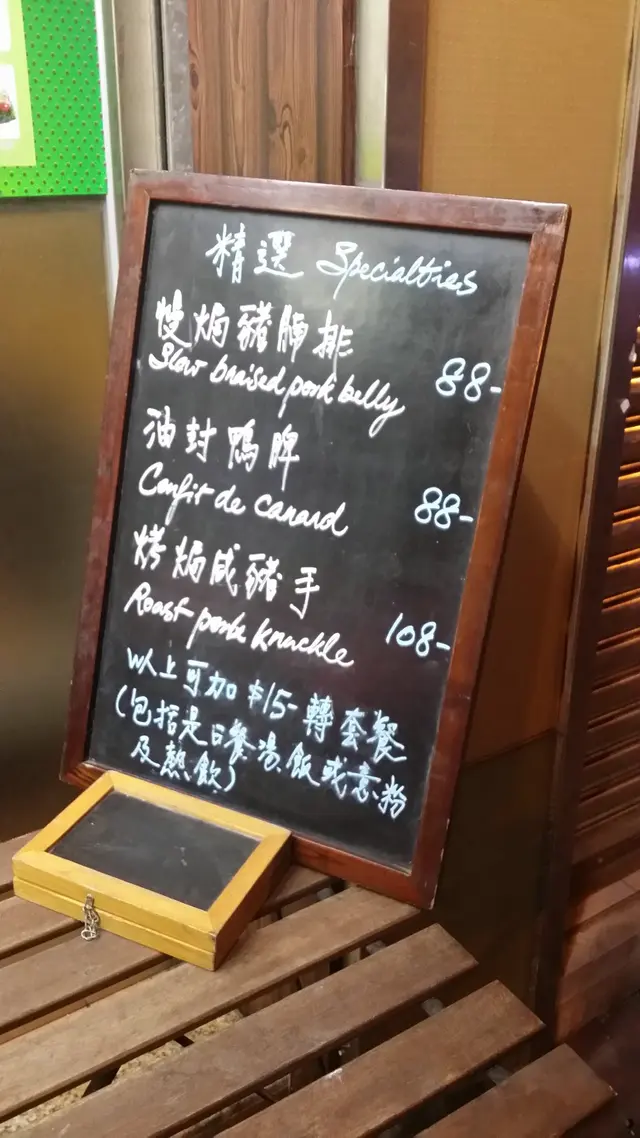 精選 Specialties
慢焗豬腩排
Slow braised pork belly 88-
油封鴨脾
Confit de canard 88-
烤焗咸豬手
Roast pork knuckle 108-
以上可加$15-轉套餐
(包括是日餐湯,飯或意粉
及熱飲)